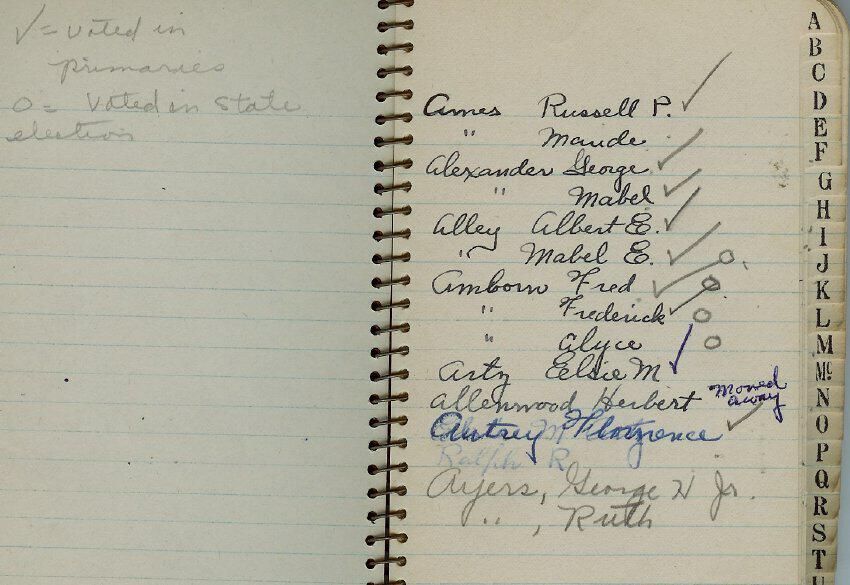 ✓ = voted in
primaries
O = Voted in State
election
Ames Russell P. ✓
" Maude
Alexander George ✓
" Mabel ✓
Alley Albert E. ✓
" Mabel E. ✓ O
Amborn Fred ✓ O
" Frederick ✓ O
" Alyce O
Artz Eelsie M ✓
Allenwood Herbert Moved away
Autrey Florence ✓
Ralph R
Ayers, George H Jr.
" , Ruth
A
B
C
D
E
F
G
H
I
J
K
L
M
Mc
N
O
P
Q
R
S
T
U